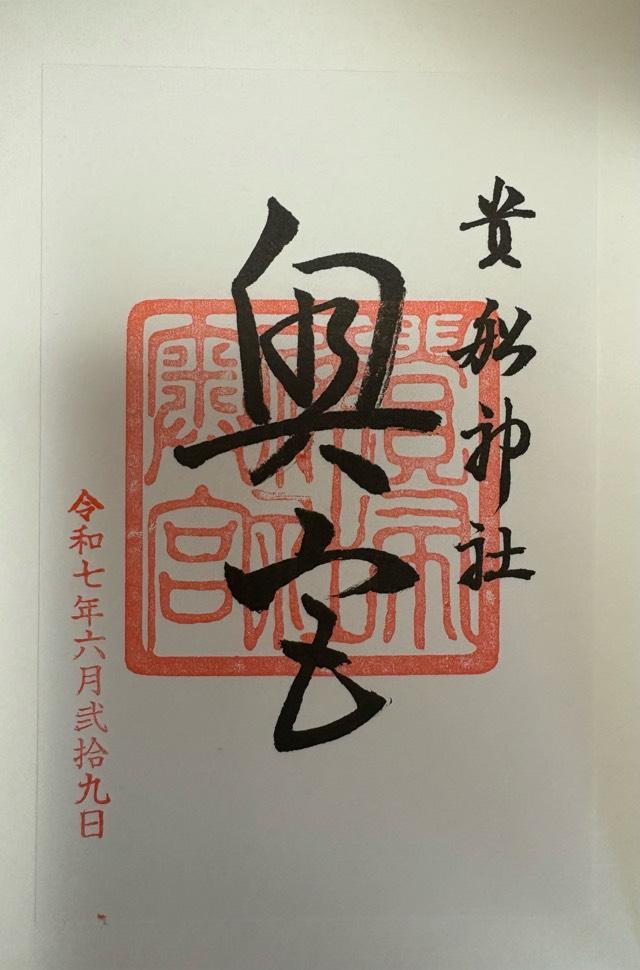 貴船神社
奥宮
令和七年六月弐拾九日